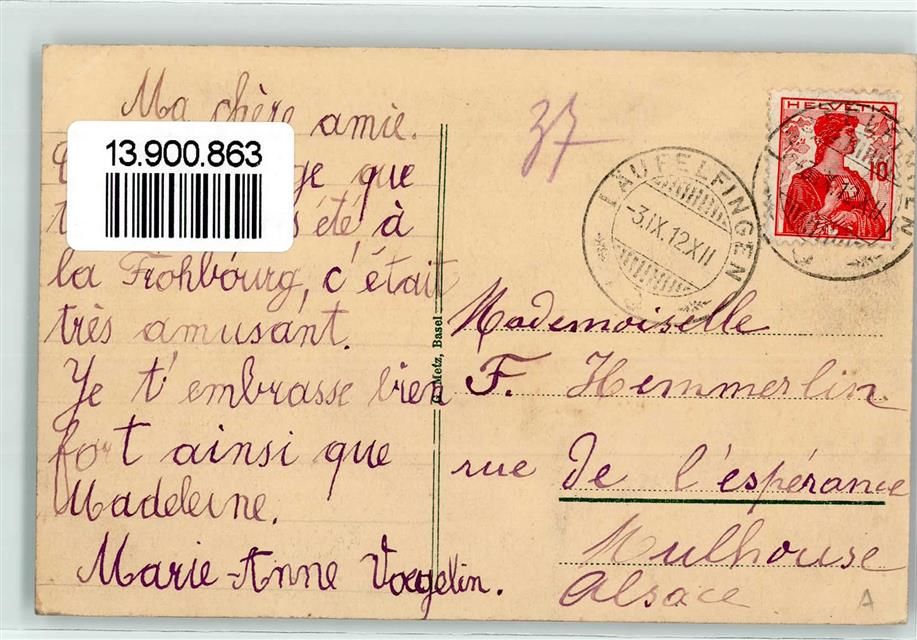 Ma chère amie.
13.900.863
ge que
été à
la Frohbourg, c'était
très amusant.
Je t'embrasse bien
fort ainsi que
Madeleine.
Marie-Anne Voegelin.
G. Metz, Basel
37
LÄUFELFINGEN
-3.IX.12.XII
HELVETIA
10
Mademoiselle
F. Hemmerlin
rue de l'espérance
Mulhouse
Alsace
A